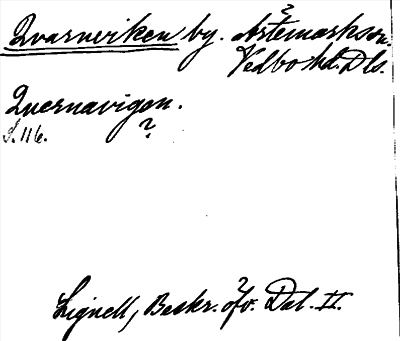 Qvarnviken by. Artemarks sn.
?
Vedbo hd. Dls.
Quernavigen.
S. 116. ?
Lignell, Beskr. öfv. Dal. II.